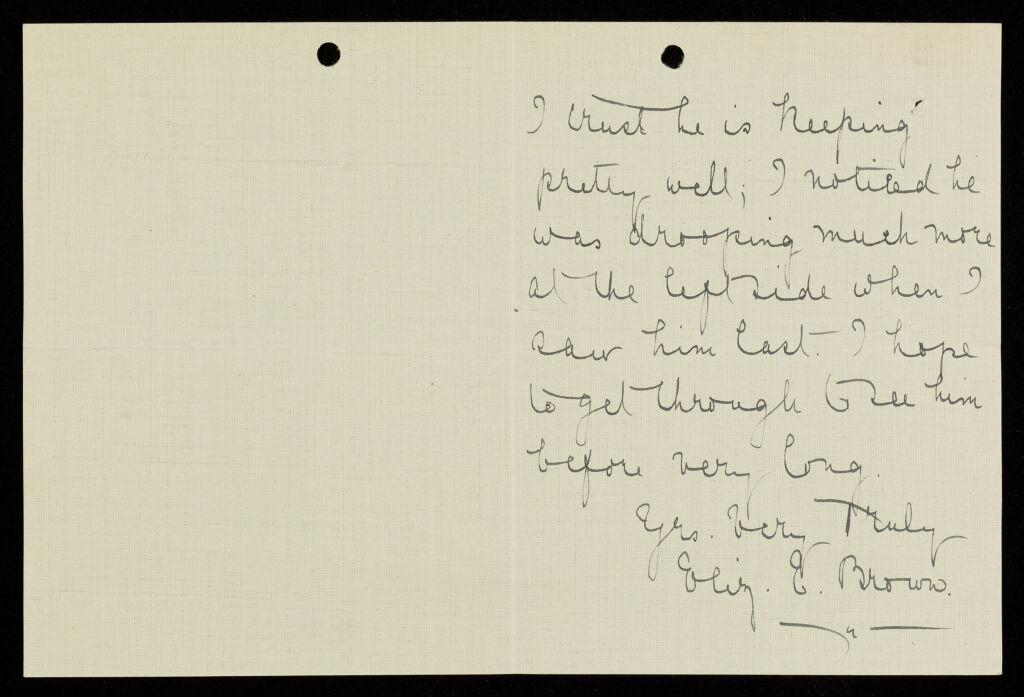 I trust he is keeping
pretty well; I noticed he
was drooping much more
at the left side when I
saw him last. I hope
to get through to see him
before very long.
Yrs. Very Truly
Eliz. E. Brown.